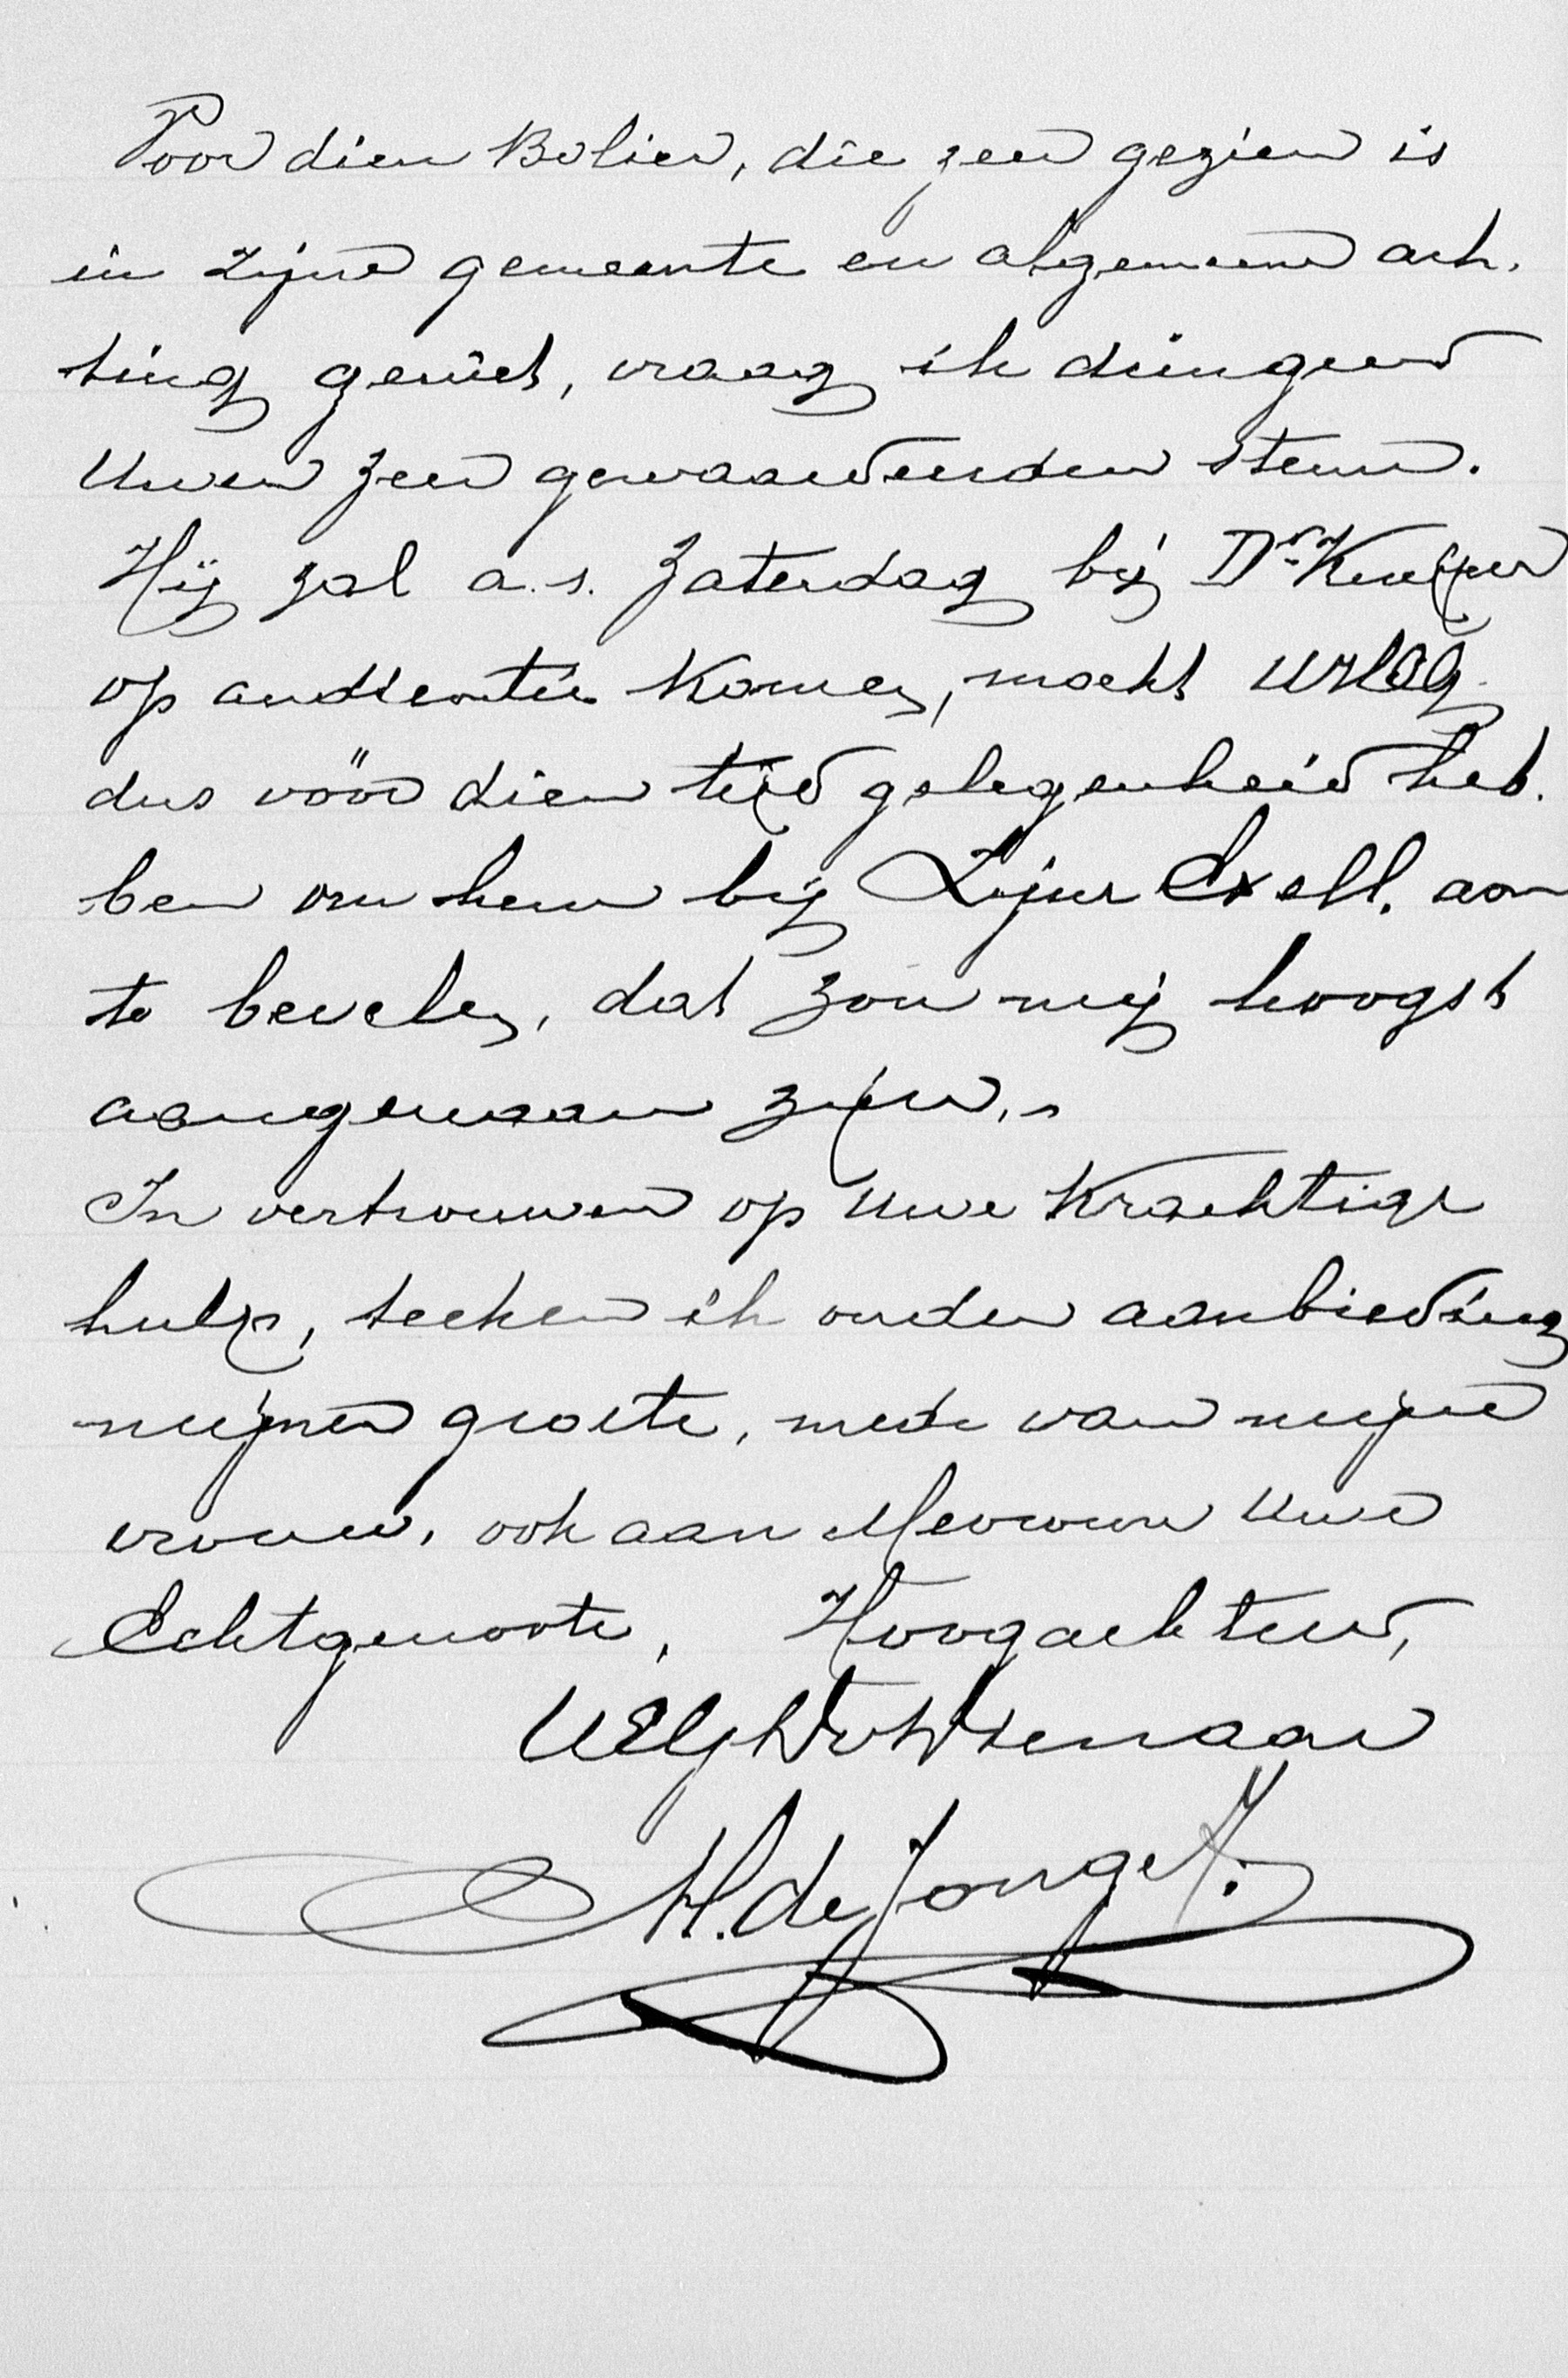 Voor dien Bolier, die zeer gezien is
in zijne gemeente en algemeene ach-
ting geniet, vraag ik dringend
Uwen zeer gewaardeerden steun.
Hij zal a.s. Zaterdag bij Dr. Kuyper
op audientie komen, mocht
dus vóór dien tijd gelegenheid heb-
ben om hem bij Zijne Excell. aan
te bevelen, dat zou mij hoogst
aangenaam zijn. -
In vertrouwen op Uwe krachtige
hulp, teeken ik onder aanbieding
mijner groete, mede van mijne
vrouw, ook aan Mevrouw Uwe
Echtgenoote, Hoogachtend,
Dienaar
H. de Jonge